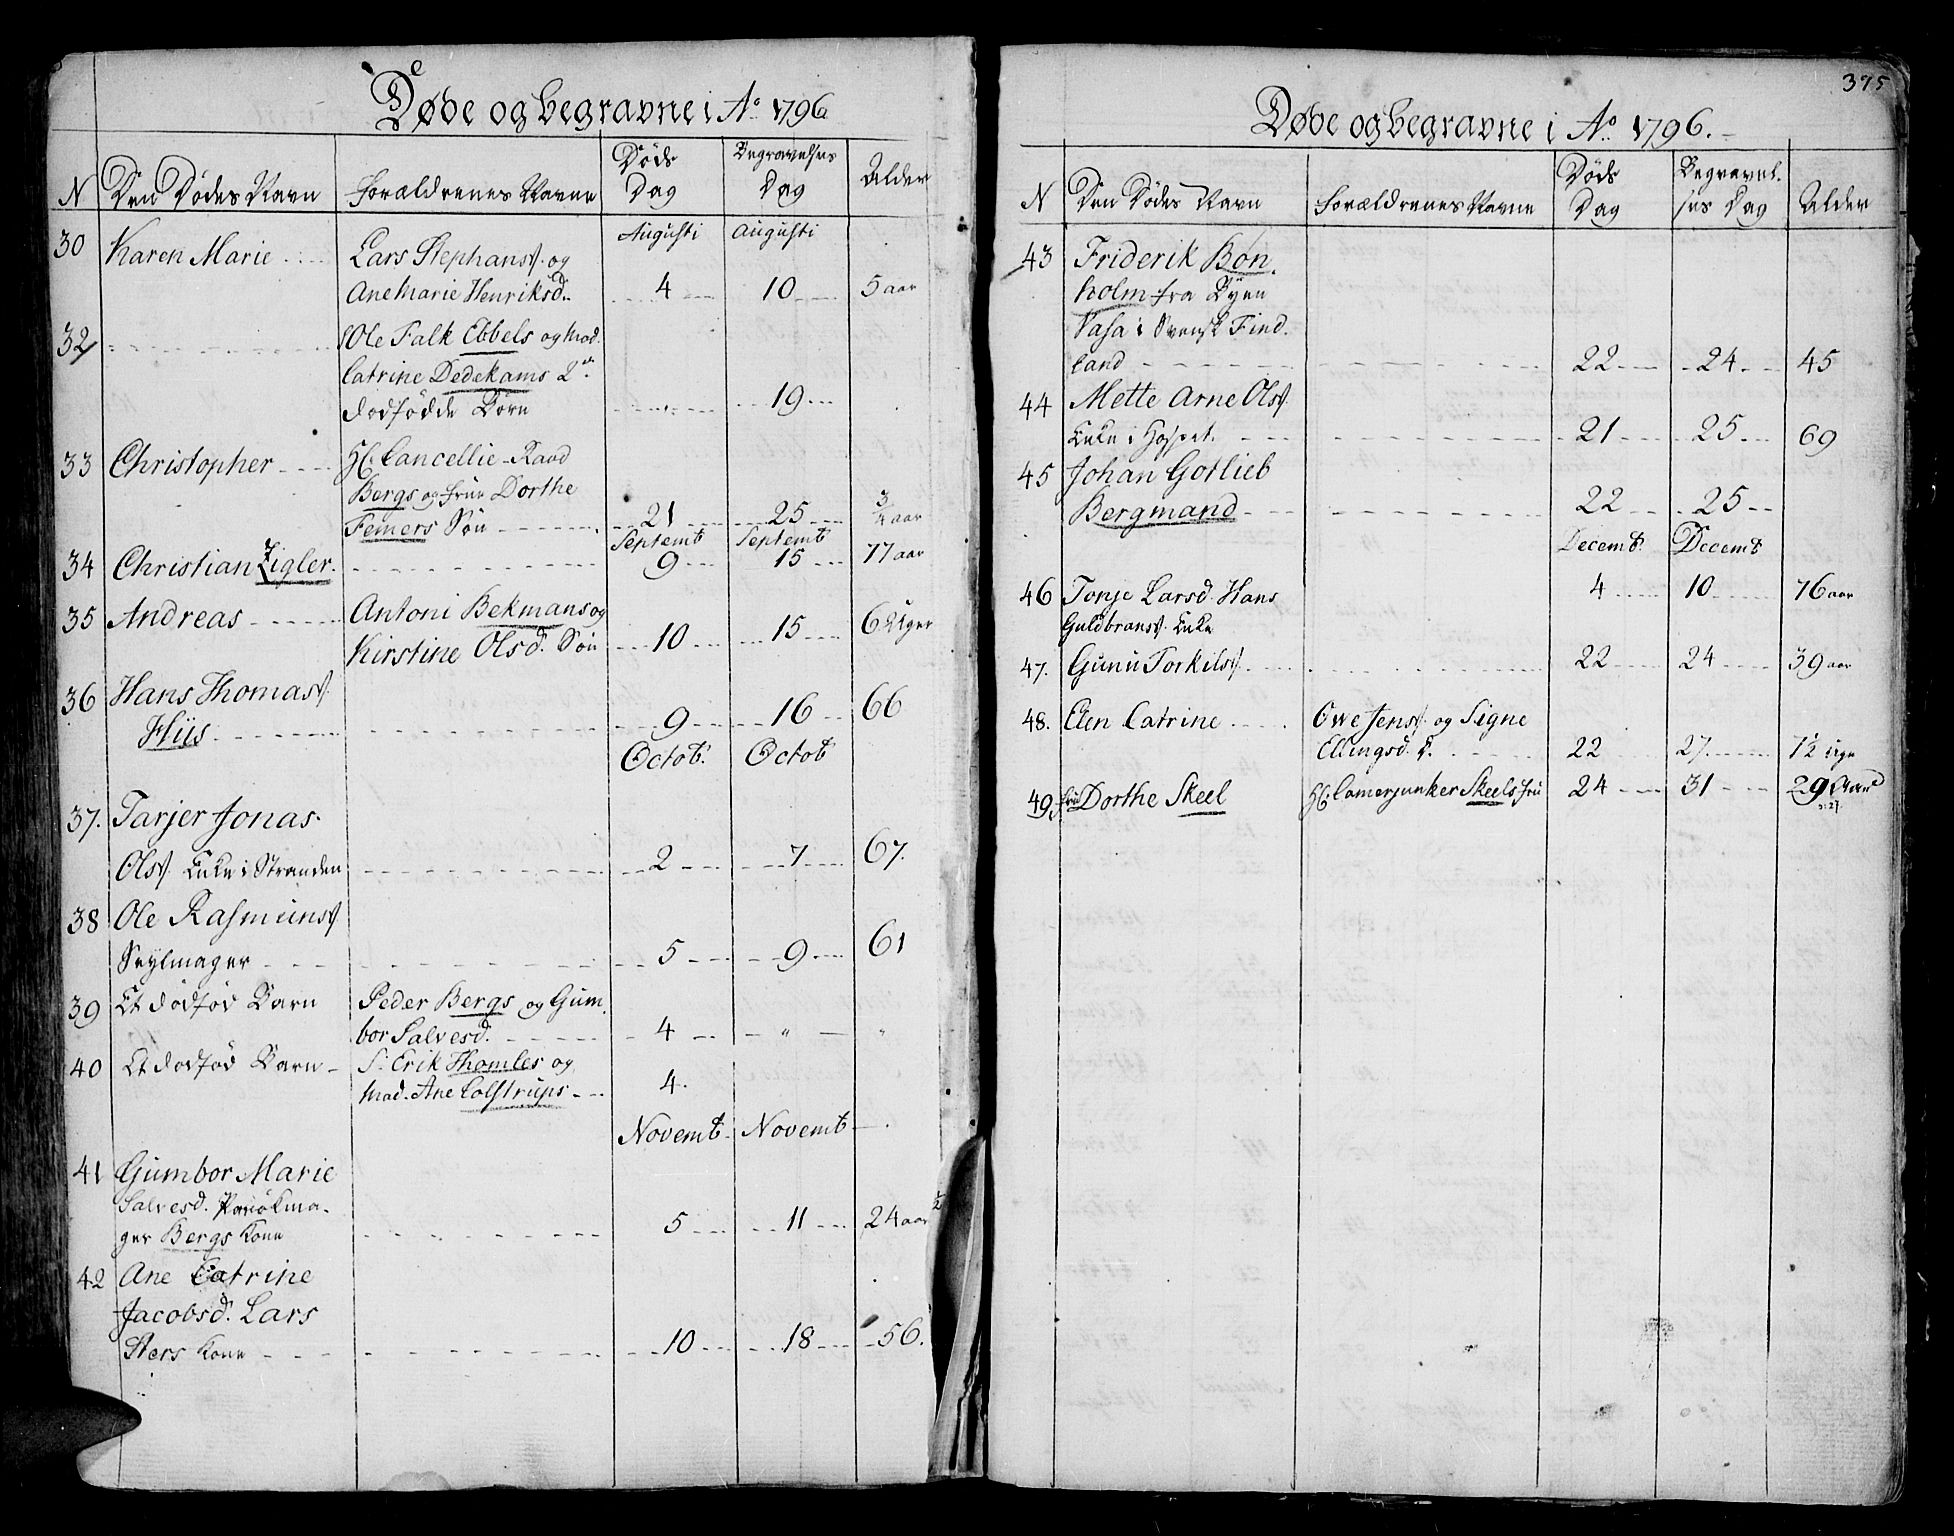 Døde og begravne i Ao 1796
N Den Dødes Navn Forældrenes Navne Døds Dag Begravelses Dag Alder
Augusti Augusti
30 Karen Marie Lars Stephans. og
Ane Marie Henriksd. 4 10 5 aar
32 Ole Falk Ebbels og Mad.
Catrine Dedekams 2de
dødfødde Børn 19
33 Christopher H: Cancellie-Raad
Bergs og Frue Dorthe
Femers Søn 21 25 3/4 aar
Septembr Septembr
34 Christian Zigler. 9 15 77 aar
35 Andreas Antoni Bekmans og
Kirstine Olsd. Søn 10 15 6 Uger
36 Hans Thomas.
Hiis 9 16 66
Octob. Octob
37. Tarjer Jonas
Ols. Enke i Stranden 2 7 67.
38 Ole Rasmuns.
Seylmager 5 9 61
39 Et dødfød Barn Peder Bergs og Gum
bor Salvesd. 4 "  "
40 Et dødfød Barn S. Erik Thomles og
Mad. Ane Colstrups 4.
Novemb. Novemb
41 Gumbor Marie
Salvesd. ma-
ger Bergs Kone 5 11 24 aar 1/2
42 Ane Catrine
Jacobsd. Lars
Sters Kone 10 18 56.
375
Døde og begravne i Ao 1796.
N Den Dødes Navn Forældrenes Navne Døds Dag Begravel. ses Dag Alder
43 Friderik Bon.
holm fra Byen
Vasa i Svensk Find.
land 22 24 45
44 Mette Arne Ols.
Enke i Hospet. 21 25 69
45 Johan Gotlieb
Bergmand 22 25
Decemb. Decemb
46 Tonje Larsd. Hans 4 10 76 aar
Guldbrans. Enke
47. Gunu Torkils. 22 24 39 aar
48. Elen Catrine Owe Jens. og Signe
Ellingsd. d. 22 27 7 1/2 uge
49 Fru Dorthe Skeel H: Camerjunker Skeels Fru 24 31 29 Aar